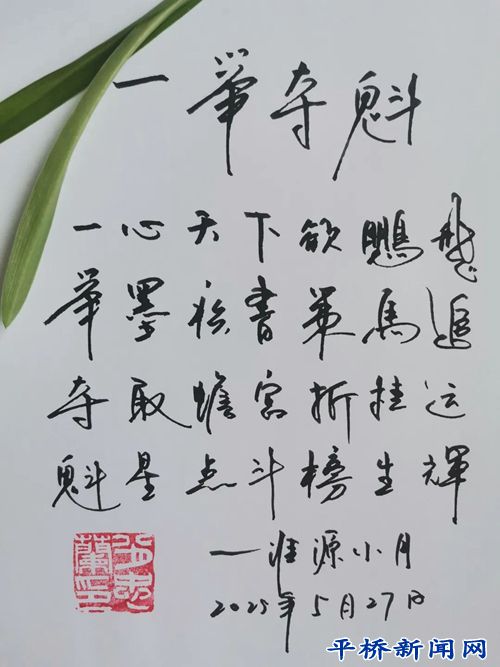 一举夺魁
一心天下欲鹏飞
举墨秋书策马追
夺取蟾宫折挂运
魁星点斗榜生辉
一淮源小月
2025年5月27日
平桥新闻网